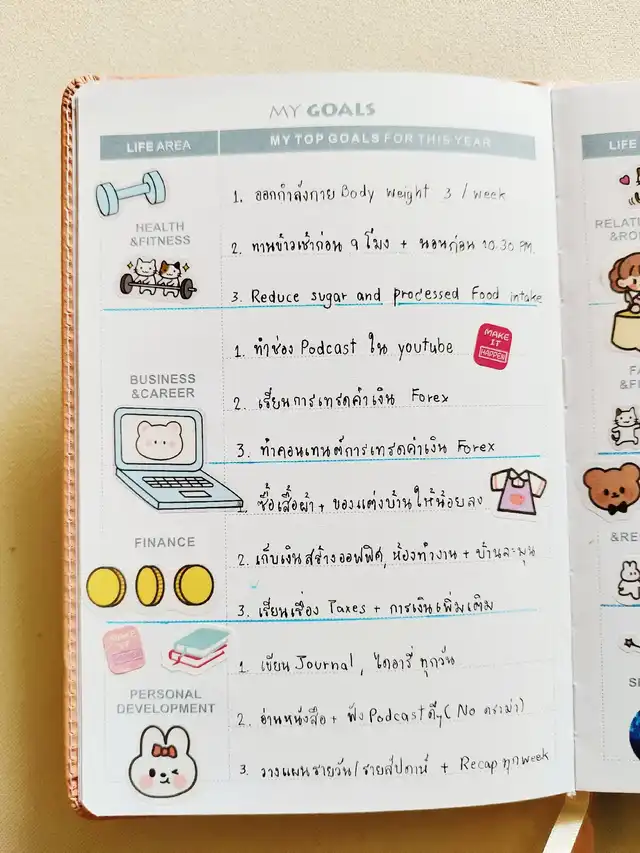 MY GOALS
LIFE AREA
MY TOP GOALS FOR THIS YEAR
HEALTH
&FITNESS
1. ออกกำลังกาย Body weight 3 / week
2. ทานข้าวเช้าก่อน 9 โมง + นอนก่อน 10.30 PM.
3. Reduce sugar and processed Food intake
BUSINESS
&CAREER
1. ทำช่อง Podcast ใน youtube
MAKE
IT
HAPPEN
2. เรียนการเทรดค่าเงิน Forex
3. ทำคอนเทนต์การเทรดค่าเงิน Forex
FINANCE
1. ซื้อเสื้อผ้า + ของแต่งบ้านให้น้อยลง
2. เก็บเงินสร้างออฟฟิศ, ห้องทำงาน + บ้านละมุน
3. เรียนเรื่อง Taxes + การเงินเพิ่มเติม
PERSONAL
DEVELOPMENT
1. เขียน Journal, ไดอารี่ ทุกวัน
2. อ่านหนังสือ + ฟัง Podcast ดีๆ (No ดราม่า)
3. วางแผนรายวัน/รายสัปดาห์ + Recap ทุก week
LIFE
RELAT
&RO
FA
&F
&RE
S